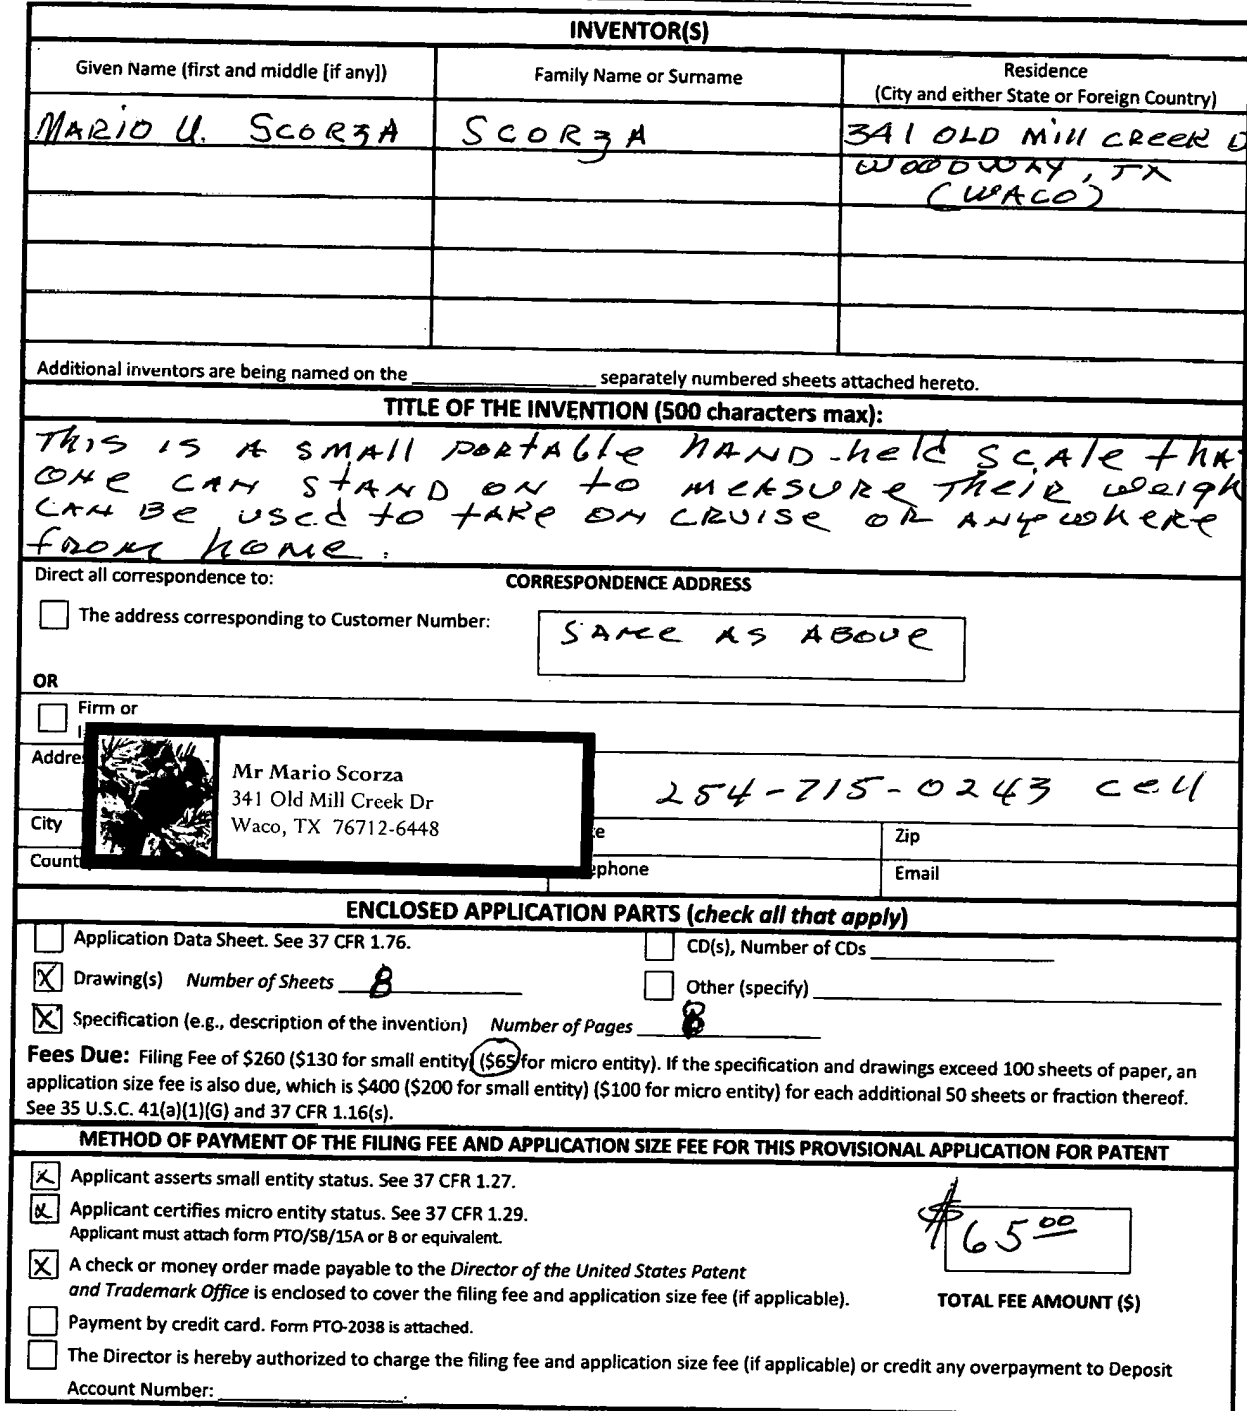 INVENTOR(S)
Given Name (first and middle [if any]) Family Name or Surname Residence
(City and either State or Foreign Country)
MARIO U. SCORZA SCORZA 341 OLD Mill CREEK D
WOODWAY, TX
(WACO)
Additional inventors are being named on the ______ separately numbered sheets attached hereto.
TITLE OF THE INVENTION (500 characters max):
THIS IS A SMALL PORTABLE HAND-held SCALE tHA
ONE CAN STAND ON to MEASURE THEIR WEIGH
CAN BE USED to TAKE ON CRUISE OR ANYWHERE
from HOME.
Direct all correspondence to: CORRESPONDENCE ADDRESS
The address corresponding to Customer Number: SAME AS ABOVE
OR
Firm or
Addre
Mr Mario Scorza
341 Old Mill Creek Dr
Waco, TX 76712-6448
254-715-0243 cell
City e Zip
Count ephone Email
ENCLOSED APPLICATION PARTS (check all that apply)
Application Data Sheet. See 37 CFR 1.76. CD(s), Number of CDs ______
X Drawing(s) Number of Sheets 8 Other (specify) ______
X Specification (e.g., description of the invention) Number of Pages
Fees Due: Filing Fee of $260 ($130 for small entity) ($65 for micro entity). If the specification and drawings exceed 100 sheets of paper, an
application size fee is also due, which is $400 ($200 for small entity) ($100 for micro entity) for each additional 50 sheets or fraction thereof.
See 35 U.S.C. 41(a)(1)(G) and 37 CFR 1.16(s).
METHOD OF PAYMENT OF THE FILING FEE AND APPLICATION SIZE FEE FOR THIS PROVISIONAL APPLICATION FOR PATENT
X Applicant asserts small entity status. See 37 CFR 1.27.
X Applicant certifies micro entity status. See 37 CFR 1.29.
Applicant must attach form PTO/SB/15A or B or equivalent.
$65.00
X A check or money order made payable to the Director of the United States Patent
and Trademark Office is enclosed to cover the filing fee and application size fee (if applicable). TOTAL FEE AMOUNT ($)
Payment by credit card. Form PTO-2038 is attached.
The Director is hereby authorized to charge the filing fee and application size fee (if applicable) or credit any overpayment to Deposit
Account Number: ______.